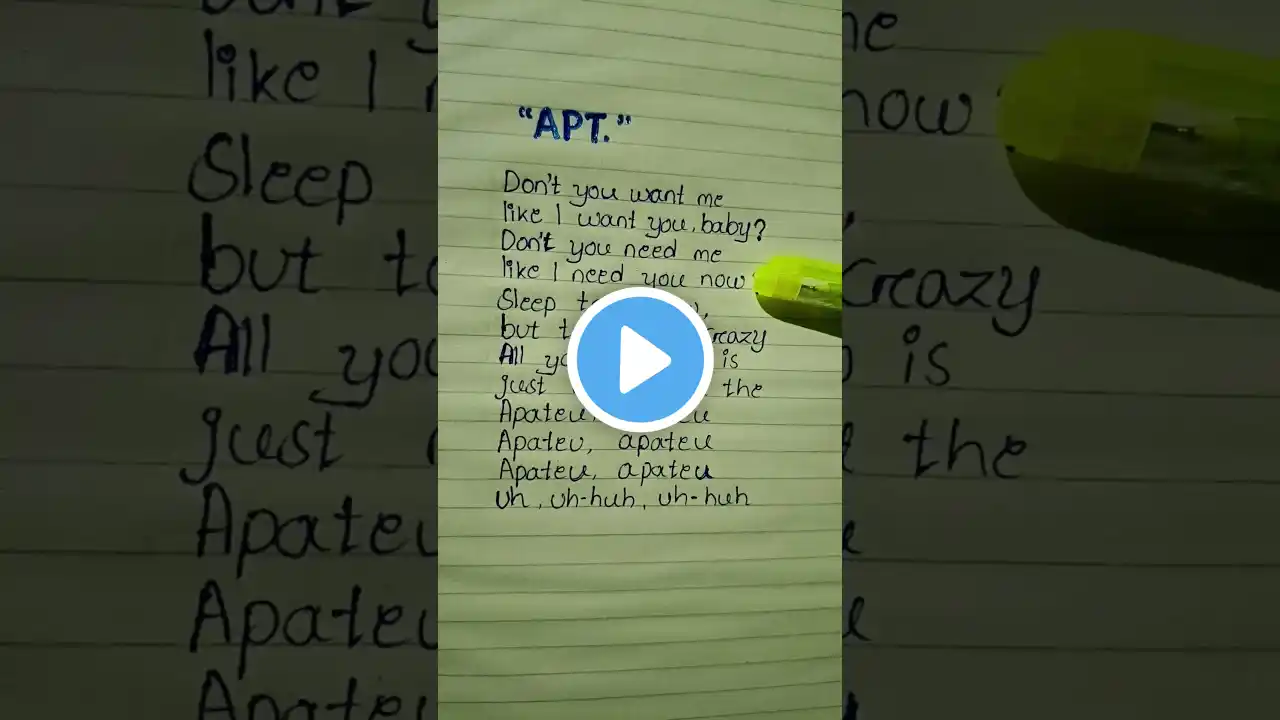 “APT.”
Don't you want me
like I want you, baby?
Don't you need me
like I need you now
Sleep
but crazy
All is
just the
Apateu,
Apateu, apateu
Apateu, apateu
Uh, uh-huh, uh-huh